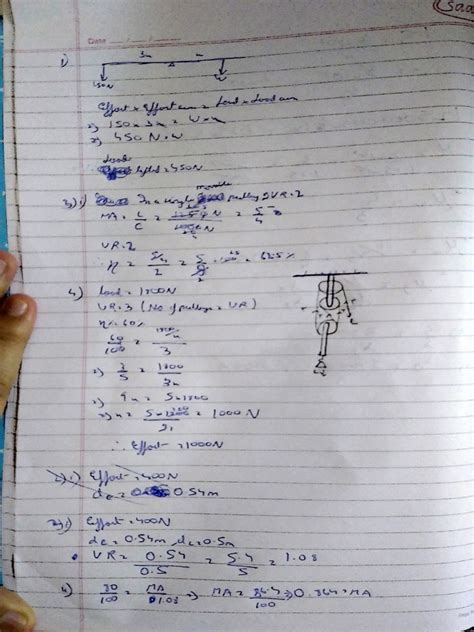 Date
1) 3m
150N W
Effort × Effort arm = Load × Load arm
⇒ 150 × 3x = W × x
⇒ 450 N = W
Load lifted = 450N
3) i) In a single movable pulley VR = 2
MA = L/E = N/N = 5/4
VR = 2
∴ η = 5/4/2 = 5/8 × 100 = 62.5%
4) Load = 1800N
VR = 3 (No of pulleys = VR)
η = 60%
60/100 = 1800/x/3
⇒ 3/5 = 1800/3x
⇒ 9x = 5×1800
⇒ x = 5×1800/9 = 1000 N
∴ Effort = 1000N
2) i) Effort = 400N
dE = 0.54m
2) i) Effort = 400N
dE = 0.54m, dL = 0.5m
VR = 0.54/0.5 = 5.4/5 = 1.08
MA/1.08 ⇒ MA = /100 ⇒ = MA